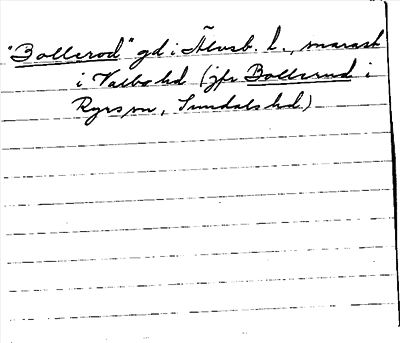 "Bollerod" gd i Älvsb. l., snarast
i Valbo hd (jfr Bollerud i
Ryrs sn, Sundals hd.)